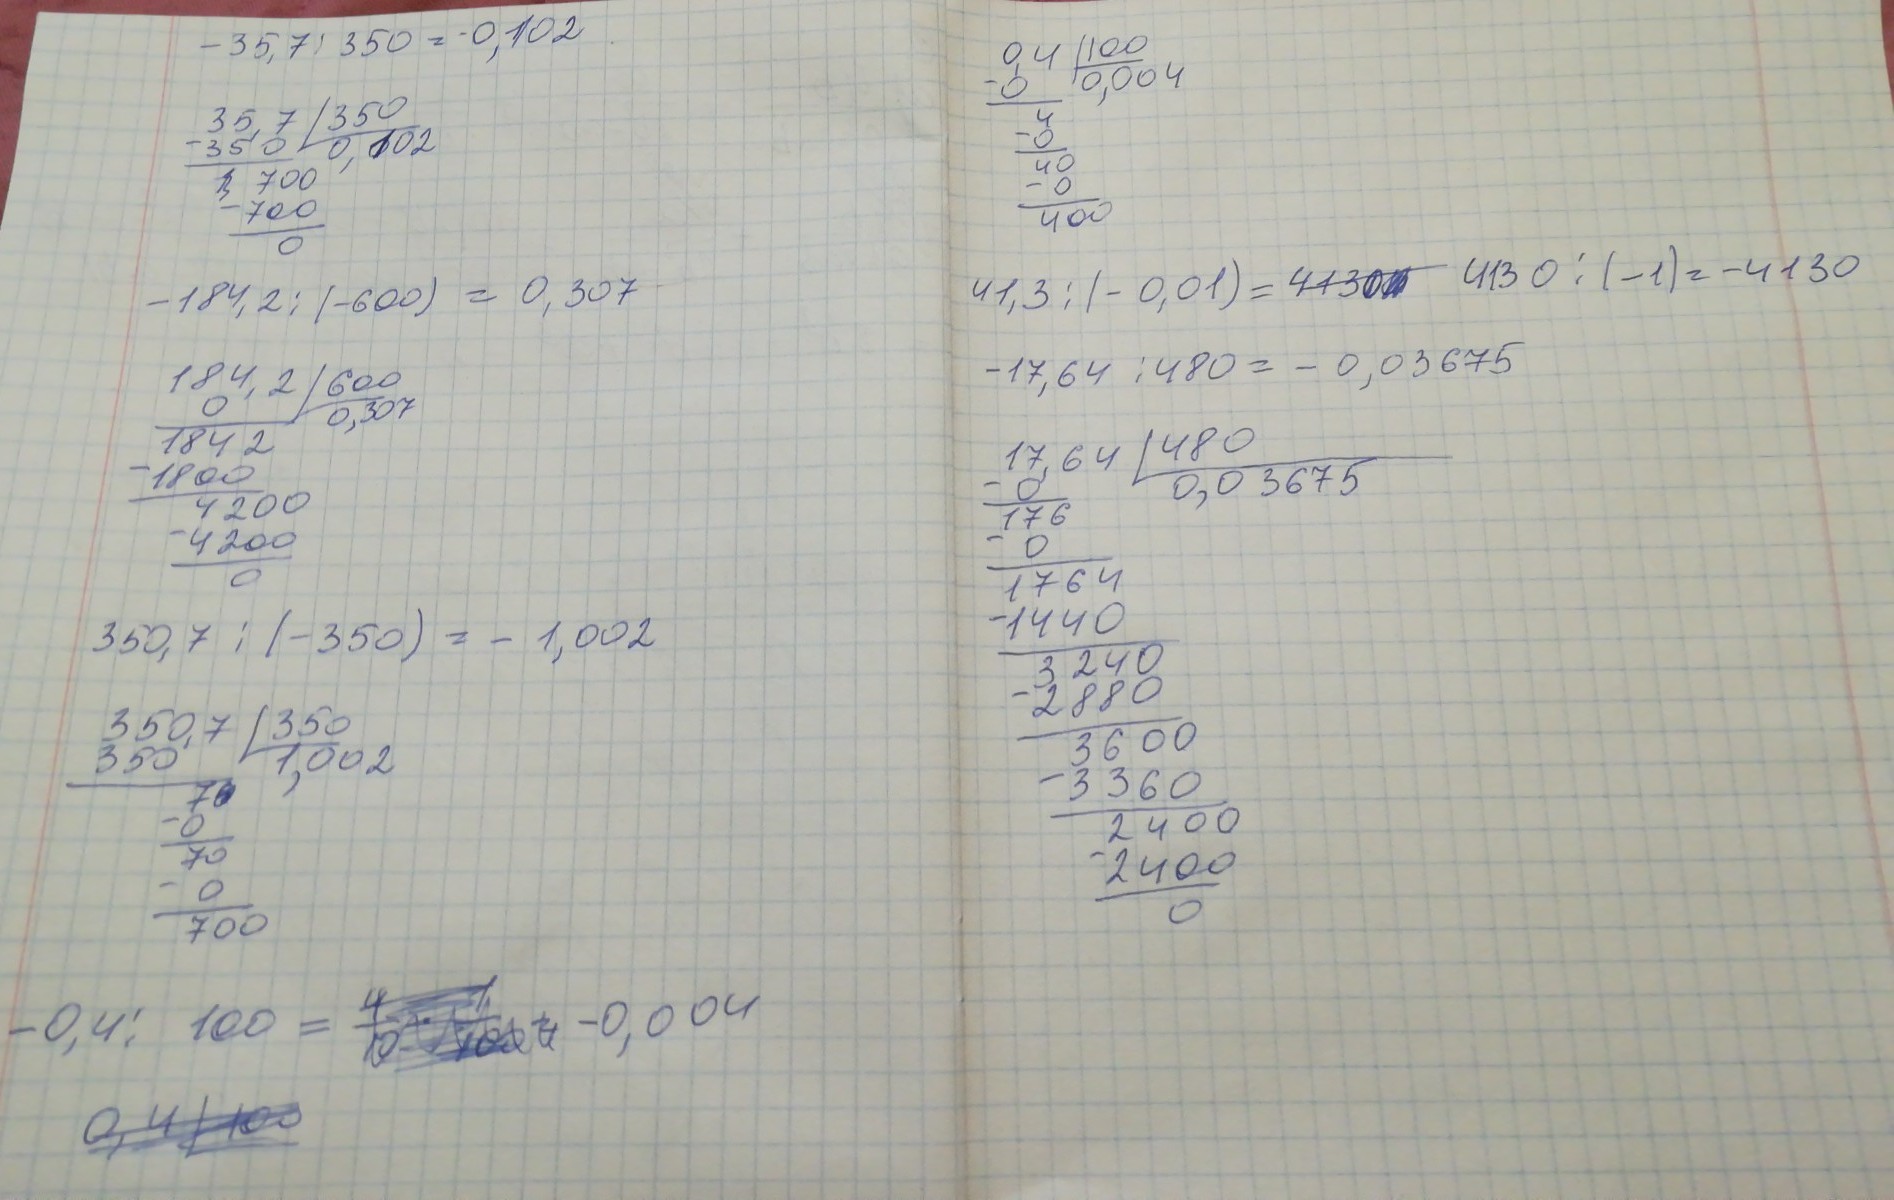 -35,7 : 350 = -0,102
35,7 | 350
-350 0,102
700
-700
0
-184,2 : (-600) = 0,307
184,2 | 600
0 0,307
1842
-1800
4200
-4200
0
350,7 : (-350) = - 1,002
350,7 | 350
350 1,002
70
-0
70
-0
700
-0,4 : 100 = -0,004
0,4 | 100
0,4 | 100
-0 0,004
4
-0
40
-0
400
41,3 : (-0,01) = 4130 4130 : (-1) = -4130
-17,64 : 480 = - 0,03675
17,64 | 480
-0 0,03675
176
-0
1764
-1440
3240
-2880
3600
-3360
2400
-2400
0